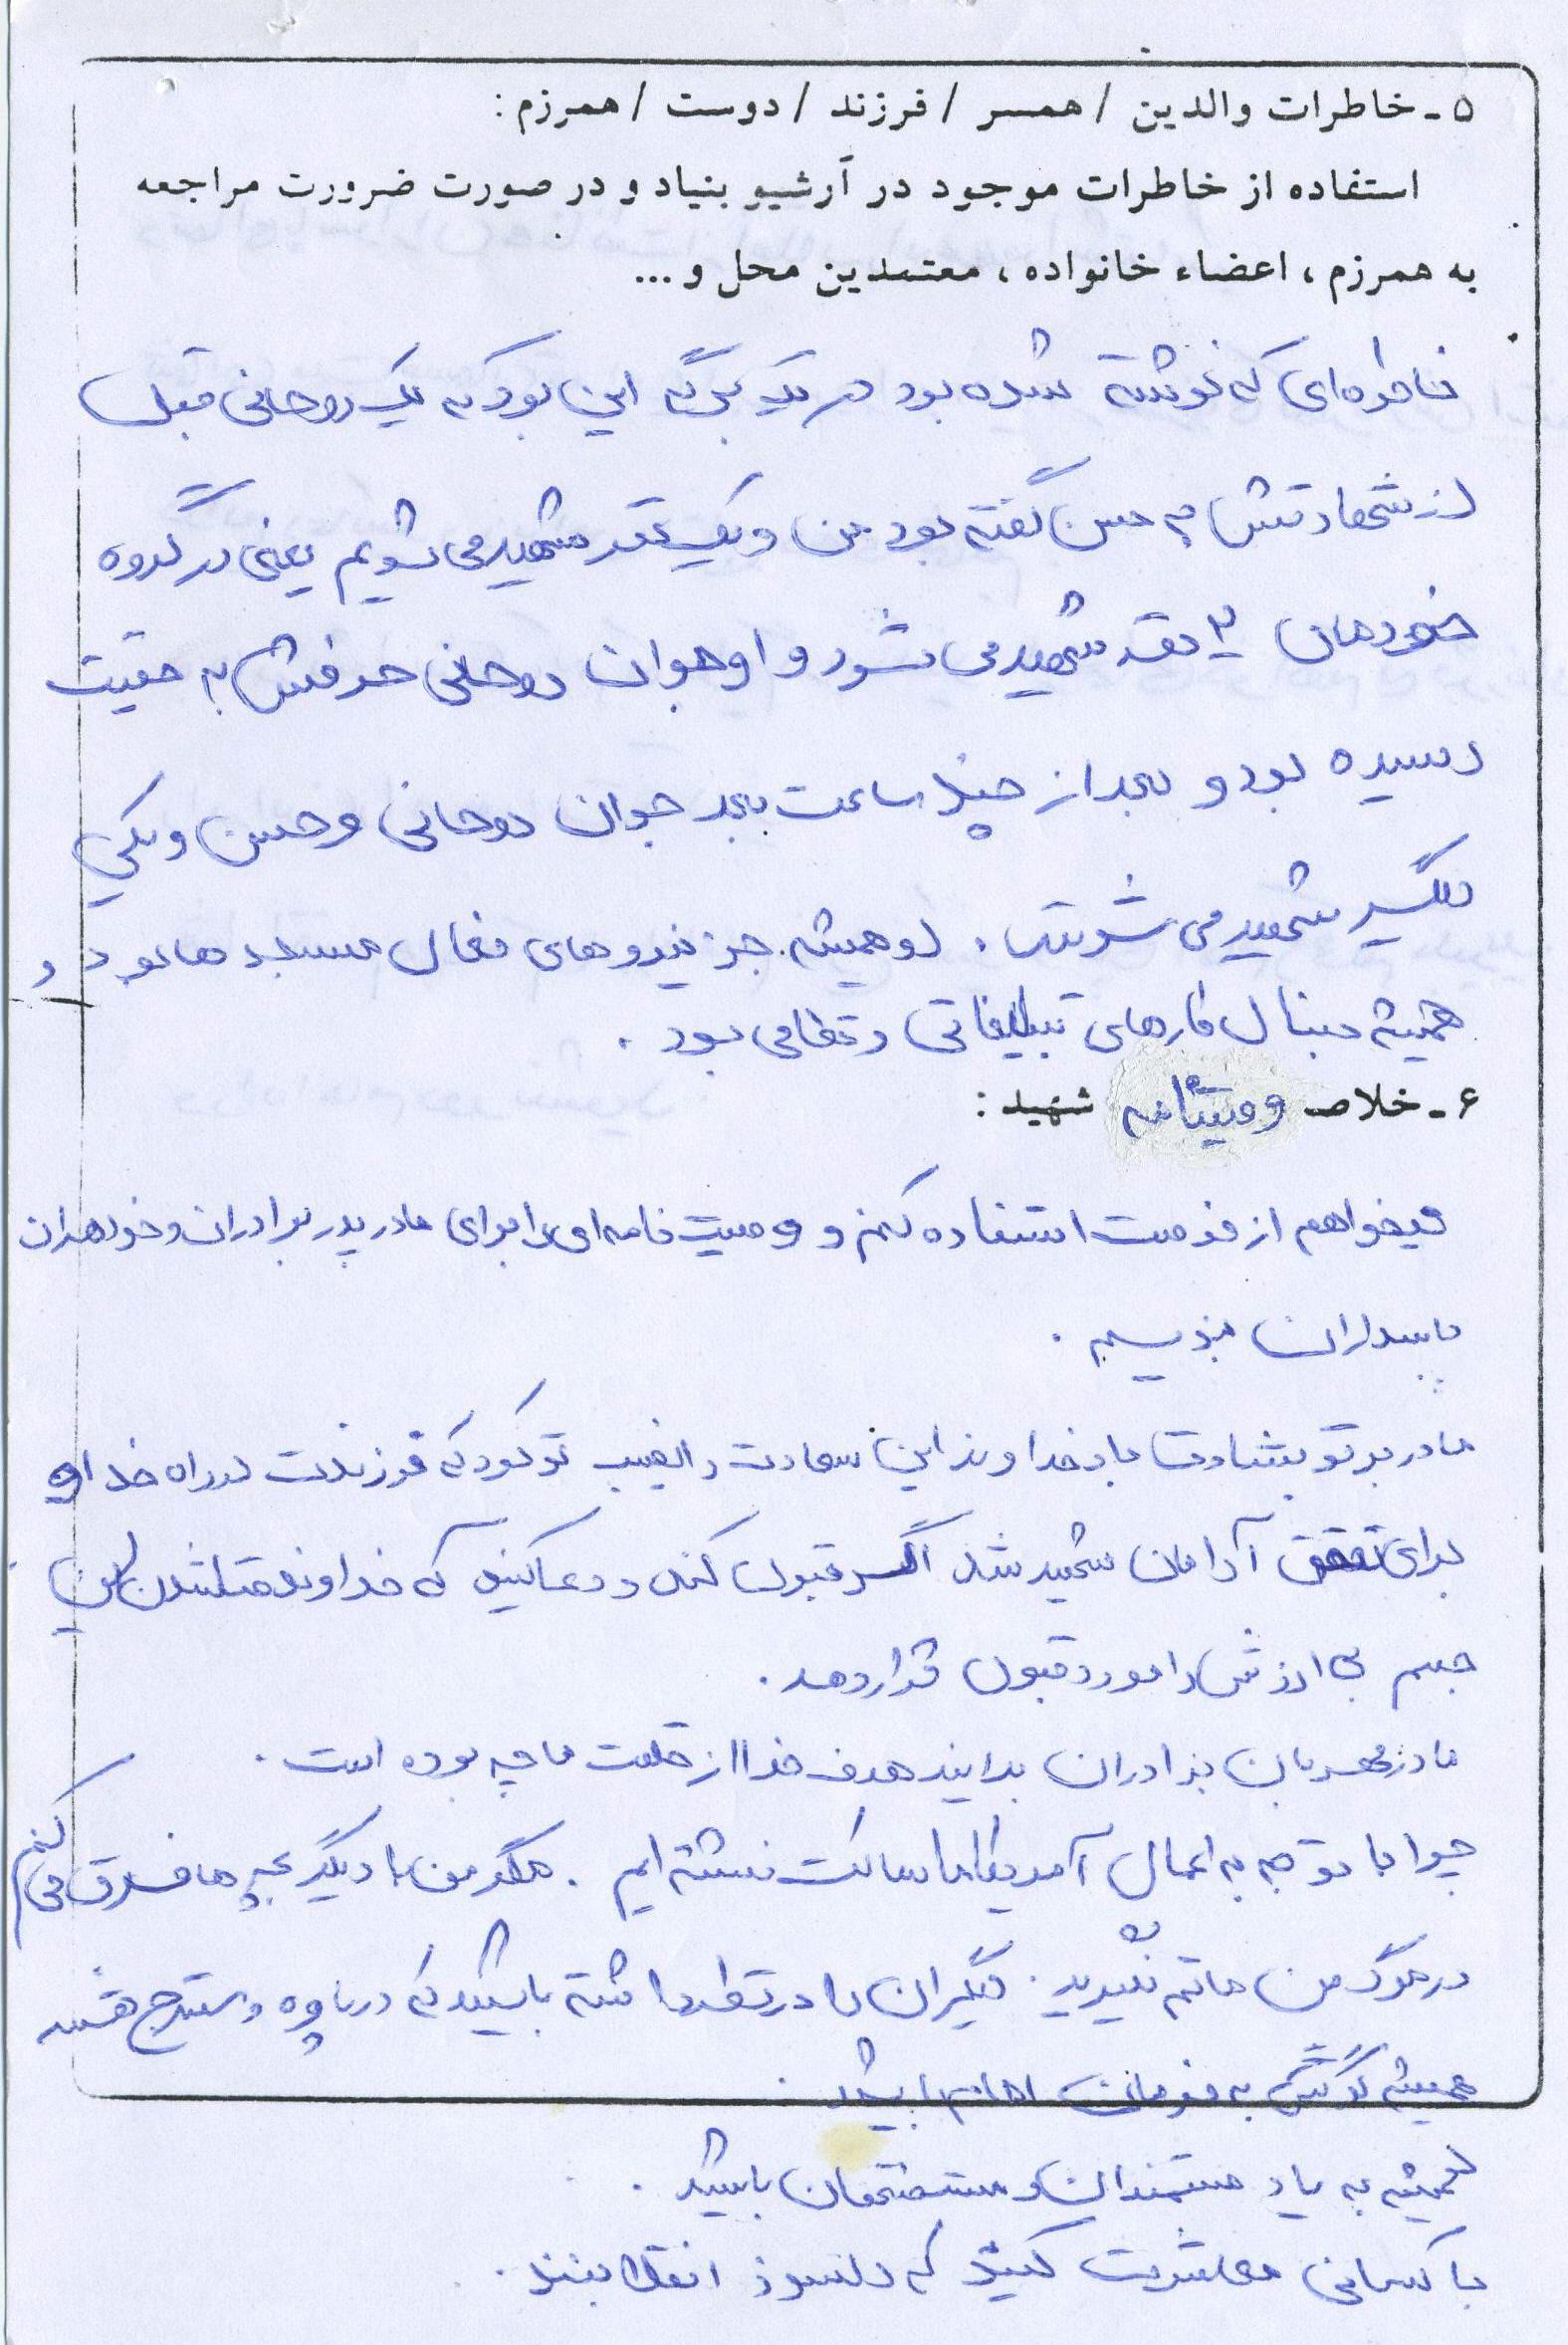 ۵ - خاطرات والدین / همسر / فرزند / دوست / همرزم :
استفاده از خاطرات موجود در آرشیو بنیاد و در صورت ضرورت مراجعه
به همرزم ، اعضاء خانواده ، معتمدین محل و ...
خاطره‌ای که نوشته شده بود در یک برگه این بود که یک روحانی قبل
از شهادتش به حسن گفته بود من و یک نفر شهید می شویم یعنی در گروه
خودمان ۳ نفر شهید می شود و او جوان روحانی حرفش به حقیقت
رسیده بود و بعد از چند ساعت بعد جوان روحانی و حسن و یکی
دیگر شهید می شوند . او همیشه جز نیروهای فعال مسجدها بود و
همیشه دنبال کارهای تبلیغاتی و نظامی بود .
۶ - خلاصه وصیتنامه شهید :
میخواهم از فرصت استفاده کنم و وصیت نامه‌ای را برای مادر پدر برادران و خواهران
پاسداران بنویسم .
مادر بر تو بشارت باد خداوند این سعادت را نصیب تو کرد که فرزندت در راه خدا و
برای تحقق آرامان شهید شد اگر قبول کند و دعا کنید که خداوند متلاشی شدن این
جسم بی ارزش را مورد قبول قرار دهد .
مادر مهربان برادران بدانید هدف خدا از خلقت ما چه بوده است .
چرا با توجه به اعمال آمریکا ما ساکت نشسته ایم . مگر من با دیگر بچه ها فرق می کنم
در مرگ من ماتم نگیرید . دیگران را در نظر داشته باشید که در پاوه و سنندج
همیشه گوش به فرمان امام باشید .
همیشه به یاد مستمندان و مستضعفان باشید .
با کسانی معاشرت کنید که دلسوز انقلابند .